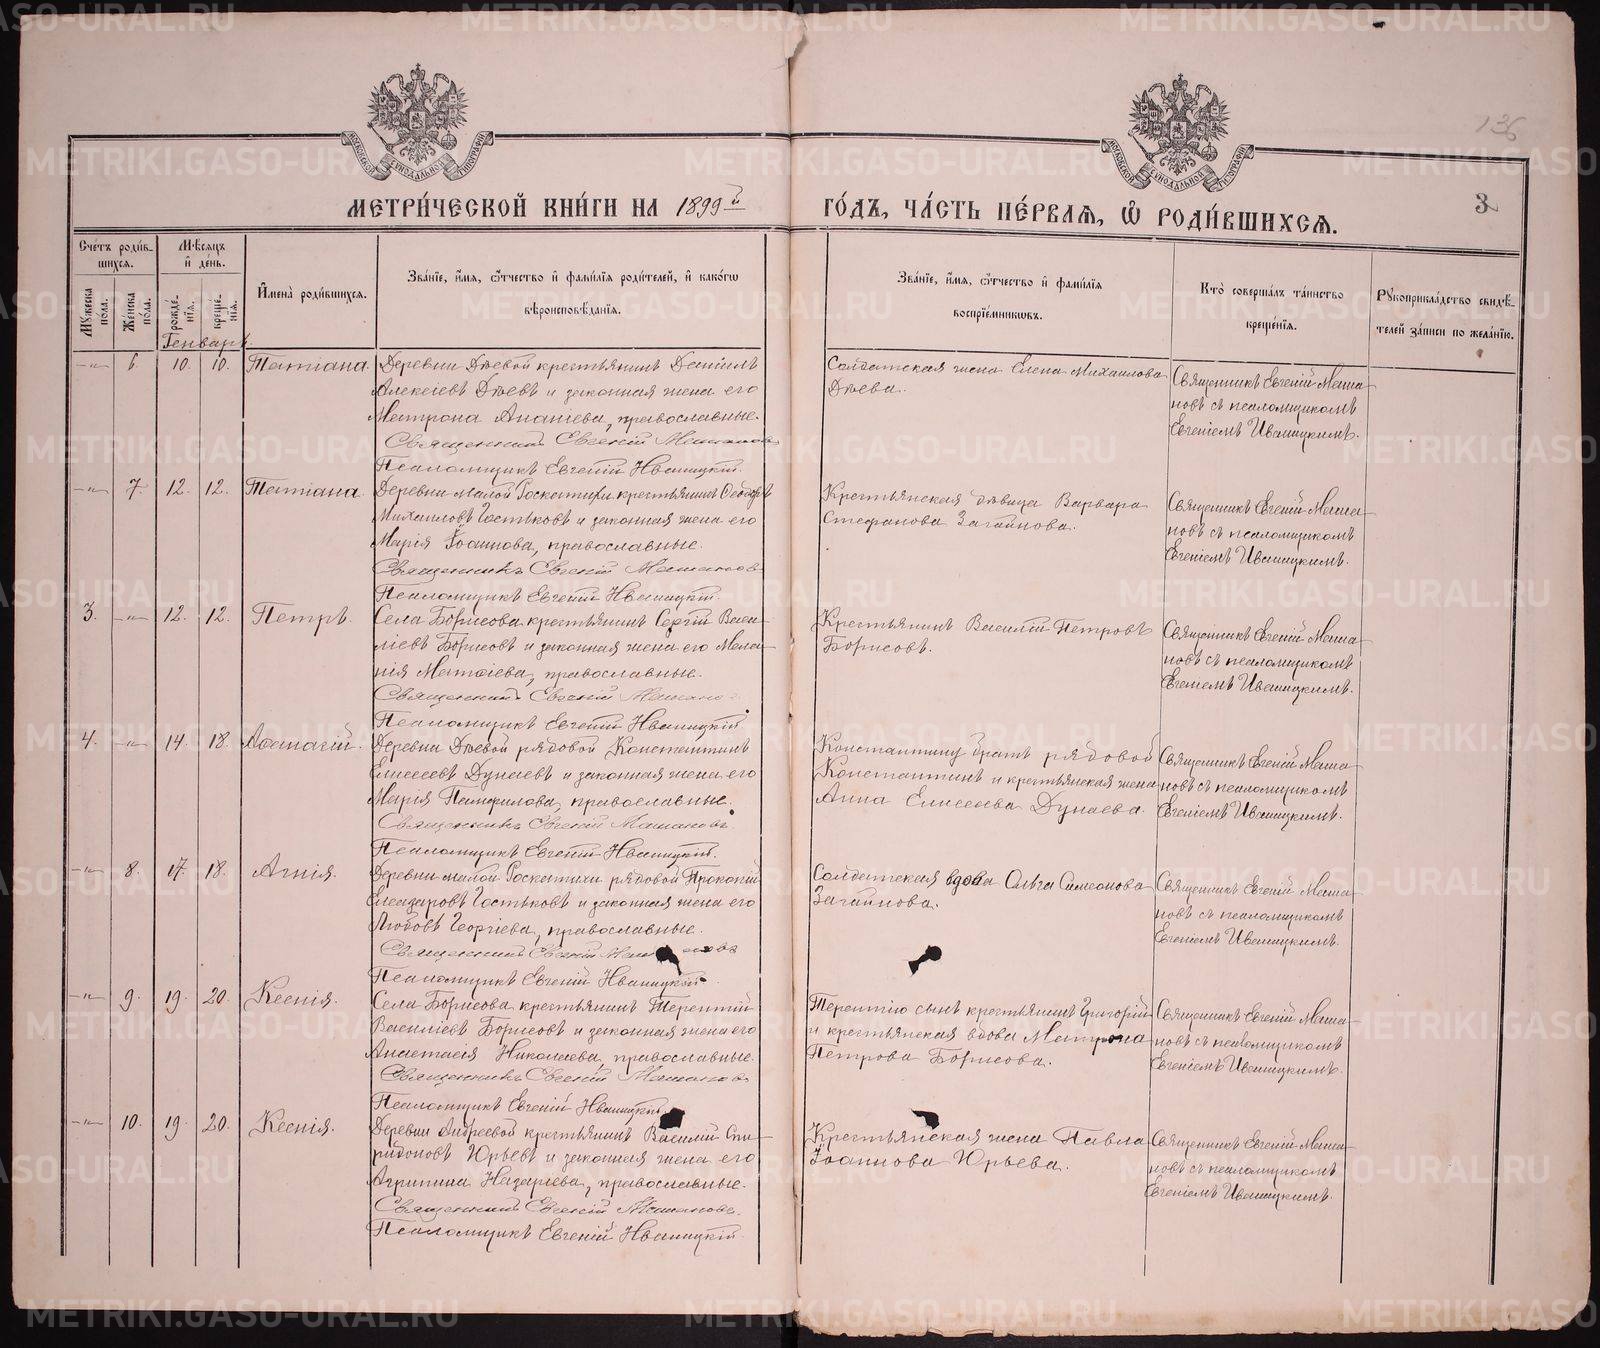 METRIKI.GASO-URAL.RU
136
МОСКОВСКОЙ СѴНОДАЛЬНОЙ ТИПОГРАФІИ
МОСКОВСКОЙ СѴНОДАЛЬНОЙ ТИПОГРАФІИ
МЕТРИ́ЧЕСКОЙ КНИ́ГИ НА 1899й
ГО́ДЪ, ЧА́СТЬ ПЕ́РВАЯ, Ѿ РОДИ́ВШИХСЯ.
3
Сче́тъ роди́вшихся.
Мꙋжеска по́ла.
Же́нска по́ла.
Мѣ́сяцъ и҆ де́нь.
Рожде́нїѧ.
креще́нїѧ.
И҆мена̀ роди́вшихсѧ.
Зва́нїе, и҆́мѧ, ѻ҆́тчество и҆ фами́лїѧ роди́телей, и҆ како́гѡ
вѣроисповѣ́данїѧ.
Зва́нїе, и҆́мѧ, ѻ҆́тчество и҆ фами́лїѧ
воспрїе́мникѡвъ.
Кто̀ соверша́лъ та́инство
креще́нїѧ.
Рꙋкоприкла́дство свидѣ́-
телей за́писи по жела́нїю.
Генварь
-"- 6. 10. 10. Татіана. Деревни Дѣевой крестьянинъ Даніилъ
Алексіевъ Дѣевъ и законная жена его
Матрона Ананіева, православные.
Священникъ Евгеній Машановъ
Псаломщикъ Евгеній Иваницкій.
Солдатская жена Елена Михаилова
Дѣева.
Священникъ Евгеній Маша-
новъ съ псаломщикомъ
Евгеніемъ Иваницкимъ.
-"- 7. 12. 12. Татіана. Деревни Малой Роскатихи крестьянинъ Ѳеодоръ
Михаиловъ Гостьковъ и законная жена его
Марія Іоаннова, православные.
Священникъ Евгеній Машановъ
Псаломщикъ Евгеній Иваницкій.
Крестьянская дѣвица Варвара
Стефанова Загайнова.
Священникъ Евгеній Маша-
новъ съ псаломщикомъ
Евгеніемъ Иваницкимъ.
3. -"- 12. 12. Петръ. Села Борисова крестьянинъ Сергій Васи-
ліевъ Борисовъ и законная жена его Мела-
нія Матѳіева, православные.
Священникъ Евгеній Машано
Псаломщикъ Евгеній Иваницкій
Крестьянинъ Василій Петровъ
Борисовъ.
Священникъ Евгеній Маша-
новъ съ псаломщикомъ
Евгеніемъ Иваницкимъ.
4. -"- 14. 18. Деревни Дѣевой рядовой Константинъ
Елисеевъ Дунаевъ и законная жена его
Марія Памфилова, православные.
Священникъ Евгеній Машановъ.
Псаломщикъ Евгеній Иваницкій.
Константину братъ рядовой
Константинъ и крестьянская жена
Анна Елисеева Дунаева.
Священникъ Евгеній Маша-
новъ съ псаломщикомъ
Евгеніемъ Иваницкимъ.
-"- 8. 17. 18. Агнія. Деревни малой Роскатихи рядовой Прокопій
Елеазаровъ Гостьковъ и законная жена его
Любовь Георгіева, православные.
Священникъ Евгеній Маш новъ
Псаломщикъ Евгеній Иваницкій
Солдатская вдова Ольга Симеонова
Загайнова.
Священникъ Евгеній Маша-
новъ съ псаломщикомъ
Евгеніемъ Иваницкимъ.
-"- 9. 19. 20. Ксенія. Села Борисова крестьянинъ Терентій
Василіевъ Борисовъ и законная жена его
Анастасія Николаева, православные.
Священникъ Евгеній Машановъ
Псаломщикъ Евгеній Иваницкій
Терентію сынъ крестьянинъ Григорій
и крестьянская вдова Матрона
Петрова Борисова.
Священникъ Евгеній Маша-
новъ съ псаломщикомъ
Евгеніемъ Иваницкимъ.
-"- 10. 19. 20. Ксенія. Деревни Андреевой крестьянинъ Василій Спи-
ридоновъ Юрьевъ и законная жена его
Агрипина Назаріева, православные.
Священникъ Евгеній Машановъ.
Псаломщикъ Евгеній Иваницкій.
Крестьянская жена Павла
Іоаннова Юрьева.
Священникъ Евгеній Маша-
новъ съ псаломщикомъ
Евгеніемъ Иваницкимъ.